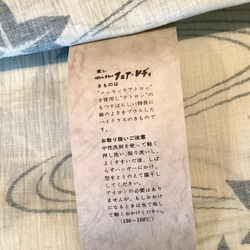 東レ
きものは
"ニッセンサアトロン"
を使用し"テトロン"の
もつすばらしい特長に
絹のよさをプラスした
ハイクラスのきものです。
お取り扱いご注意
中性洗剤を使って軽く
押し洗い、振り洗いし、
よくすすいだ後、しぼ
らずハンガーにかけ、
型をととのえて陰干し
してください。
アイロンの必要はあり
ませんが、もしおかけ
になるときは当て布し
て軽くおかけください。
(130〜150℃)